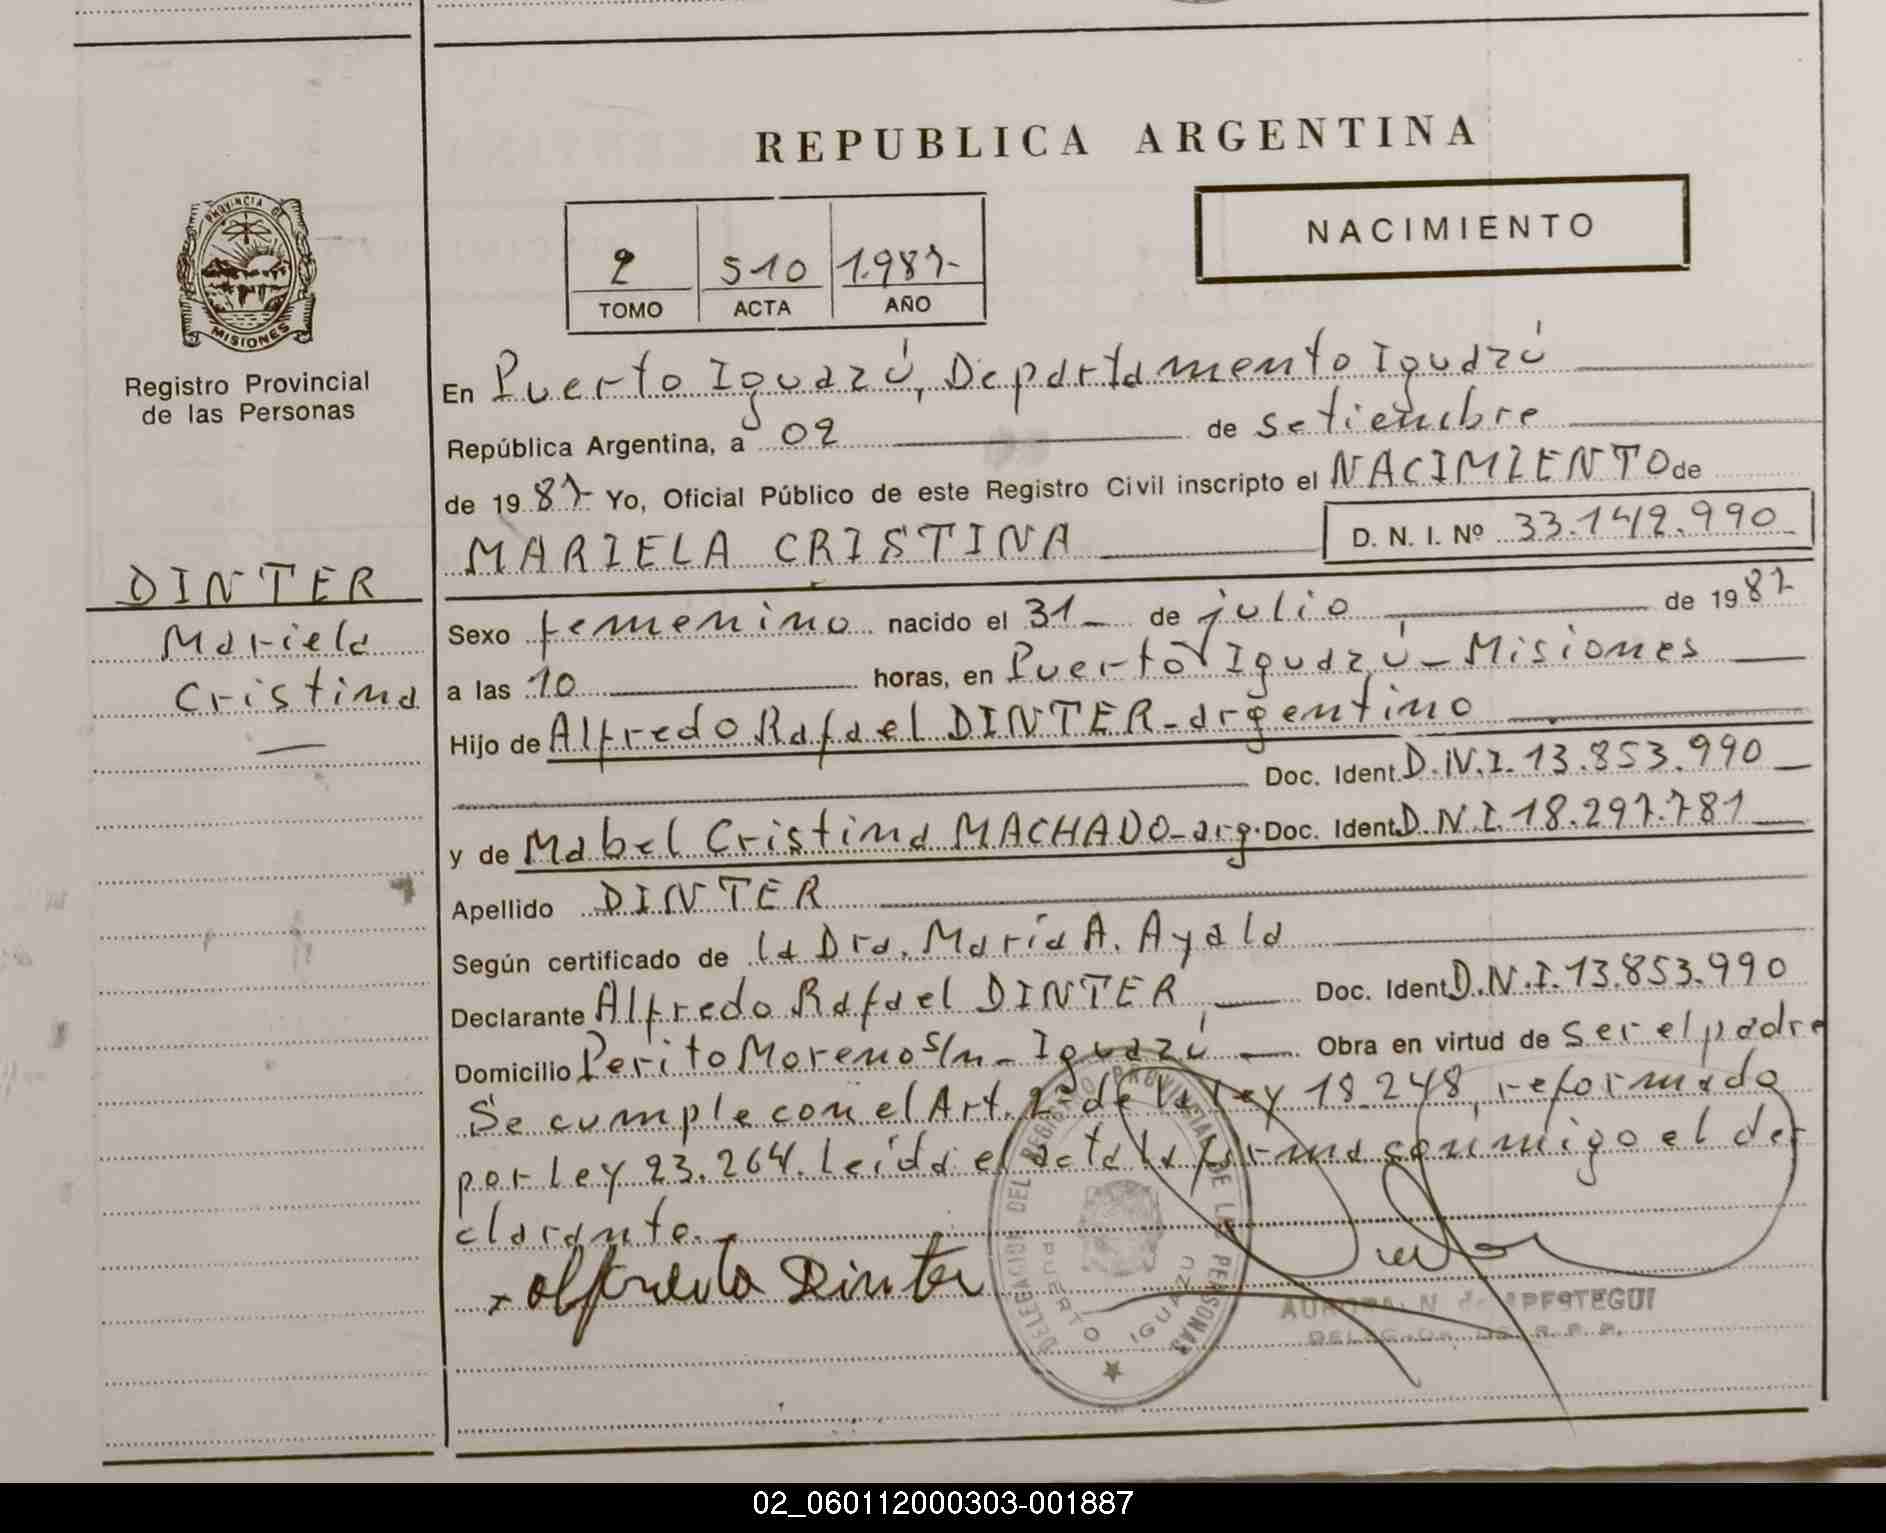 REPUBLICA ARGENTINA
NACIMIENTO
2 510 1.987-
TOMO ACTA AÑO
PROVINCIA DE
MISIONES
Registro Provincial
de las Personas
DINTER
Mariela
Cristina
En Puerto Iguazú, Departamento Iguazú
República Argentina, a 02 de setiembre
de 1987- Yo, Oficial Público de este Registro Civil inscripto el NACIMIENTO de
MARIELA CRISTINA D. N. I. Nº 33.142.990
Sexo femenino nacido el 31 de julio de 1987
a las 10 horas, en Puerto Iguazú - Misiones
Hijo de Alfredo Rafael DINTER - argentino
Doc. Ident. D.N.I. 13.853.990
y de Mabel Cristina MACHADO - arg. Doc. Ident. D.N.I. 18.297.781
Apellido DINTER
Según certificado de la Dra. María A. Ayala
Declarante Alfredo Rafael DINTER Doc. Ident. D.N.I. 13.853.990
Domicilio Perito Moreno s/n - Iguazú Obra en virtud de ser el padre
Se cumple con el Art. 2º de la Ley 18.248, reformado
por Ley 23.264. Leída el acta la firma conmigo el de-
clarante.
x Alfredo Dinter
DELEGACION DEL REGISTRO PROVINCIAL DE LAS PERSONAS
PUERTO IGUAZU
AURORA N. de APESTEGUI
DELEGADA DE R.P.P.
02_060112000303-001887